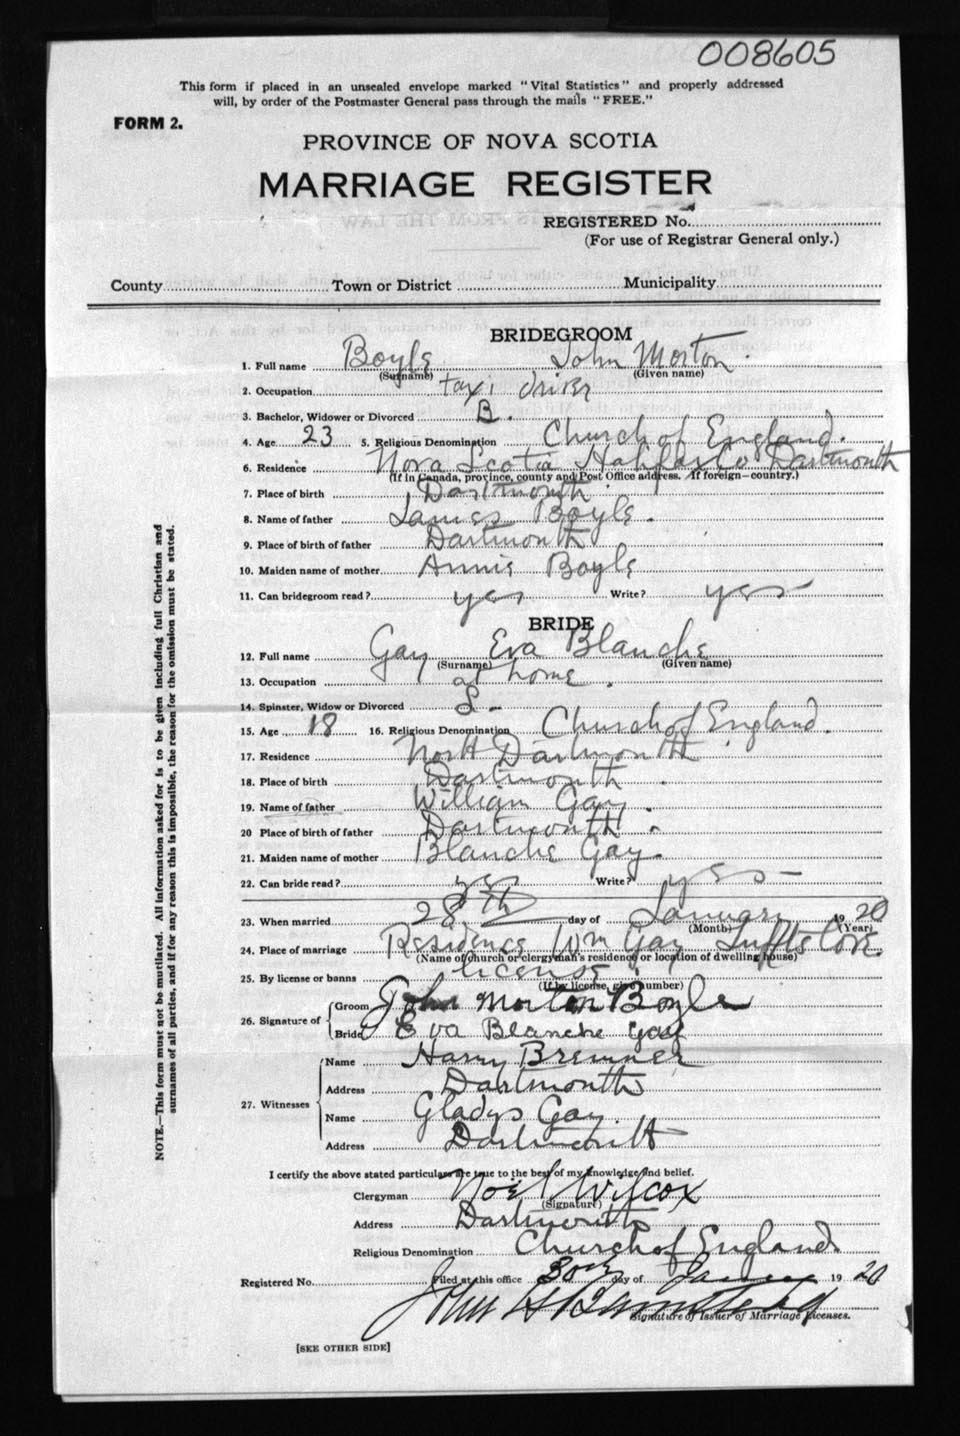 008605
This form if placed in an unsealed envelope marked "Vital Statistics" and properly addressed
will, by order of the Postmaster General pass through the mails "FREE."
FORM 2.
PROVINCE OF NOVA SCOTIA
MARRIAGE REGISTER
REGISTERED No.
(For use of Registrar General only.)
County Town or District Municipality
BRIDEGROOM
1. Full name Boyle John Morton.
(Surname) (Given name)
2. Occupation taxi driver
3. Bachelor, Widower or Divorced B.
4. Age 23 5. Religious Denomination Church of England.
6. Residence Nova Scotia Halifax Co Dartmouth
(If in Canada, province, county and Post Office address. If foreign—country.)
7. Place of birth Dartmouth.
8. Name of father James Boyle.
9. Place of birth of father Dartmouth
10. Maiden name of mother Annie Boyle
11. Can bridegroom read? yes Write? yes
BRIDE
12. Full name Gay Eva Blanche
(Surname) (Given name)
13. Occupation at home.
14. Spinster, Widow or Divorced S-
15. Age 18 16. Religious Denomination Church of England.
17. Residence North Dartmouth
18. Place of birth Dartmouth
19. Name of father William Gay.
20 Place of birth of father Dartmouth.
21. Maiden name of mother Blanche Gay.
22. Can bride read? yes Write? yes-
23. When married 28th day of January 1920
(Month) (Year)
24. Place of marriage Residence Wm Gay Tufts Cove.
(Name of church or clergyman's residence or location of dwelling house)
25. By license or banns license
(If by license, give number)
26. Signature of Groom John Morton Boyle
Bride Eva Blanche Gay
27. Witnesses
Name Harry Bremner
Address Dartmouth
Name Gladys Gay
Address Dartmouth
I certify the above stated particulars are true to the best of my knowledge and belief.
Clergyman Noel Wilcox
(Signature)
Address Dartmouth
Religious Denomination Church of England.
Registered No. Filed at this office 30th day of January 1920
John H
Signature of Issuer of Marriage Licenses.
[SEE OTHER SIDE]
NOTE.—This form must not be mutilated. All information asked for is to be given including full Christian and
surnames of all parties, and if for any reason this is impossible, the reason for the omission must be stated.